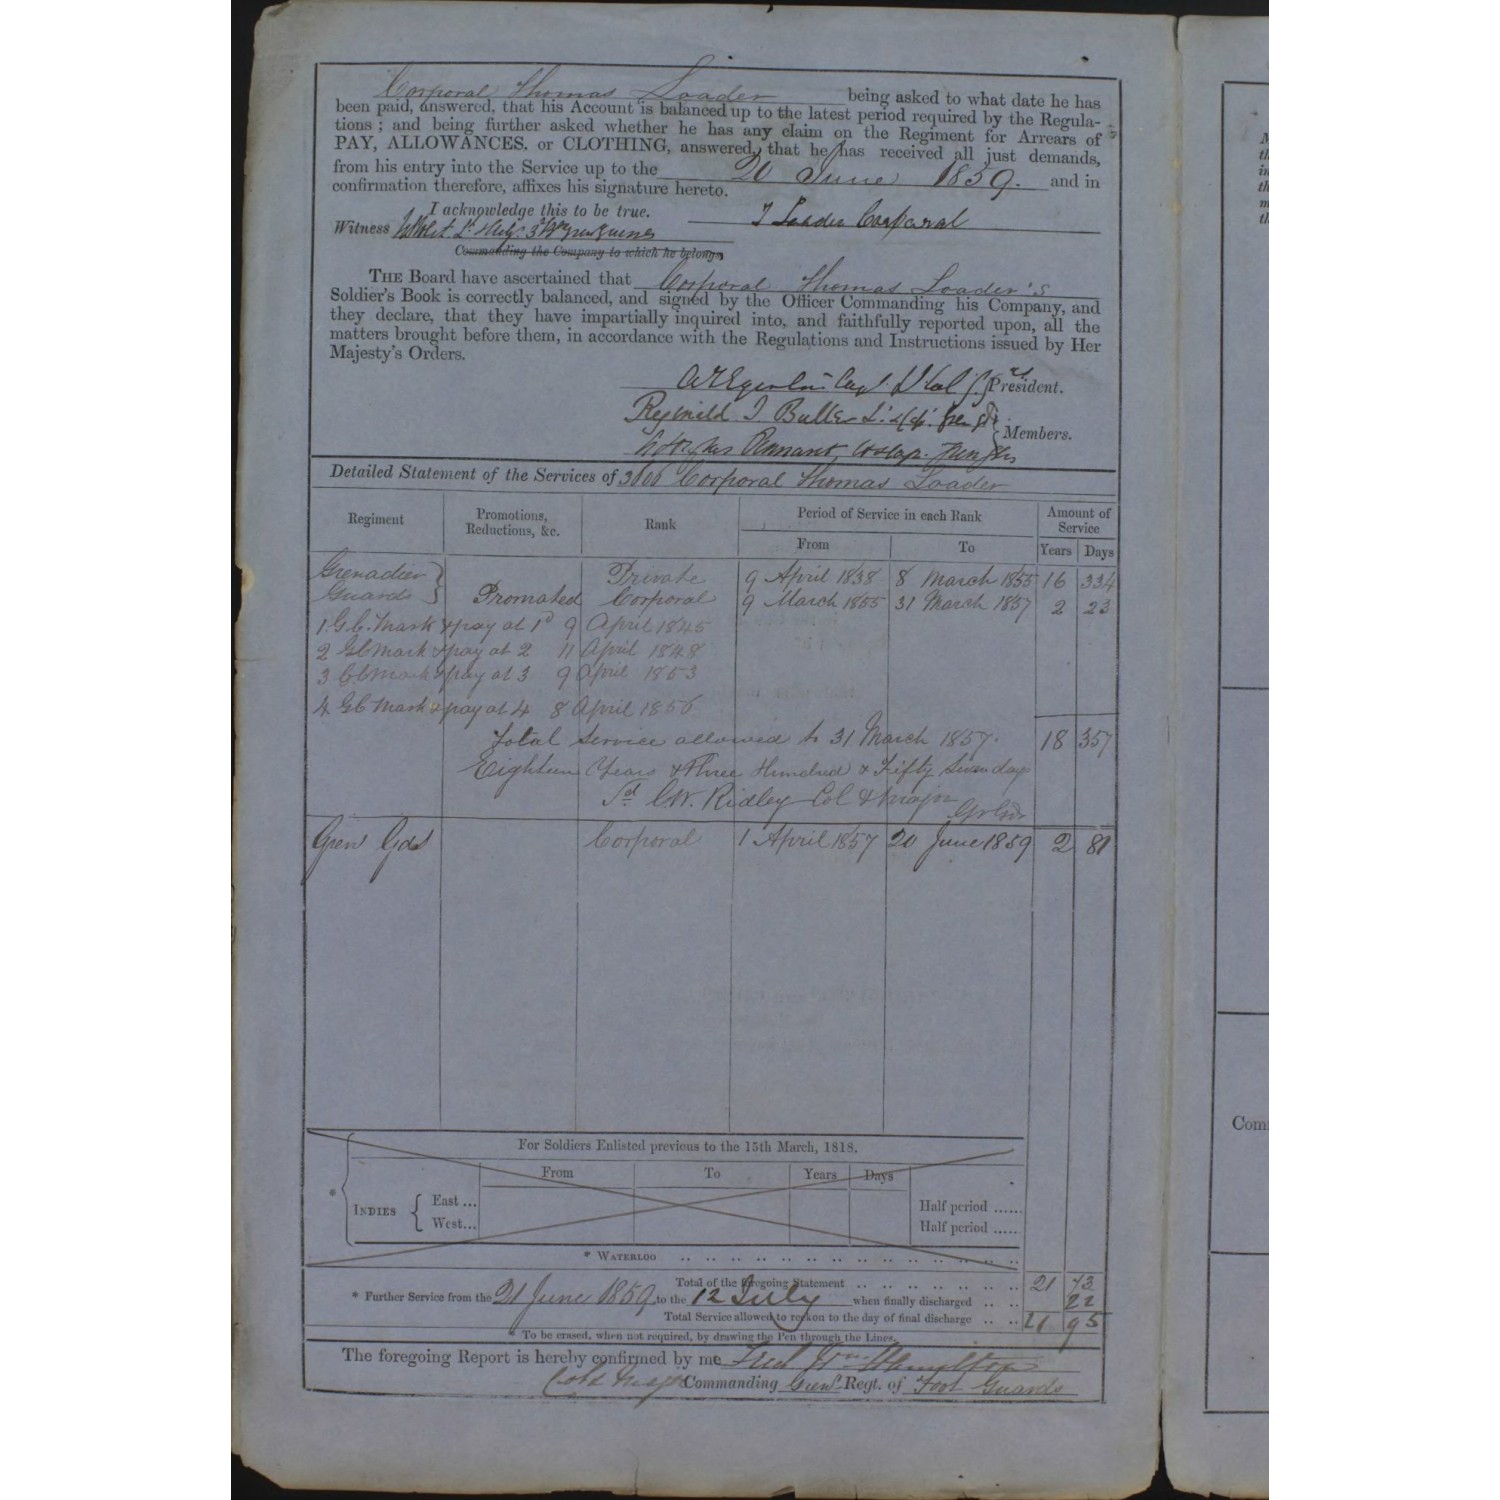 Corporal Thomas Loader being asked to what date he has
been paid, answered, that his Account is balanced up to the latest period required by the Regula-
tions ; and being further asked whether he has any claim on the Regiment for Arrears of
PAY, ALLOWANCES. or CLOTHING, answered, that he has received all just demands,
from his entry into the Service up to the 20 June 1859. and in
confirmation therefore, affixes his signature hereto.
I acknowledge this to be true. T Loader Corporal
Witness
Commanding the Company to which he belongs
THE Board have ascertained that Corporal Thomas Loader's
Soldier's Book is correctly balanced, and signed by the Officer Commanding his Company, and
they declare, that they have impartially inquired into, and faithfully reported upon, all the
matters brought before them, in accordance with the Regulations and Instructions issued by Her
Majesty's Orders.
President.
Reginald T Buller
Members.
Pennant
Detailed Statement of the Services of 3666 Corporal Thomas Loader
Regiment Promotions, Reductions, &c. Rank Period of Service in each Rank Amount of Service
From To Years Days
Grenadier Private 9 April 1838 8 March 1855 16 334
Guards Promoted Corporal 9 March 1855 31 March 1857 2 23
1 G C. Mark & pay at 1d 9 April 1845
2 GC Mark & pay at 2 11 April 1848
3 GC Mark & pay at 3 9 April 1853
4 GC Mark & pay at 4 8 April 1856
Total Service allowed to 31 March 1857. 18 357
Eighteen Years & Three Hundred & Fifty Seven days
Sd C.W. Ridley Col & Major
Gr Gds
Gren Gds Corporal 1 April 1857 20 June 1859 2 81
For Soldiers Enlisted previous to the 15th March, 1818.
From To Years Days
* INDIES { East ... Half period ......
West... Half period .....
* WATERLOO .. .. .. .. .. .. .. .. .. .. .. .. .. ..
Total of the foregoing Statement .. .. .. .. .. .. .. 21 73
* Further Service from the 21 June 1859 to the 12 July when finally discharged .. .. 22
Total Service allowed to reckon to the day of final discharge .. .. 21 95
* To be erased, when not required, by drawing the Pen through the Lines.
The foregoing Report is hereby confirmed by me Fred Wm Hamilton
Col & Major Commanding Gren. Regt. of Foot Guards
Com